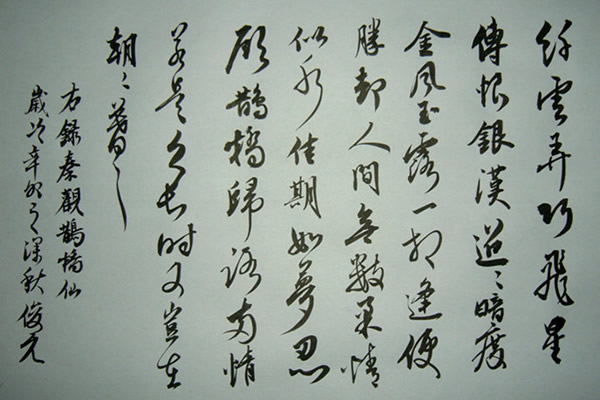 纤雲弄巧飛星
傳恨銀漢迢〻暗度
金風玉露一相逢便
勝却人間無數柔情
似水佳期如夢忍
顧鵲橋歸路兩情
若是久長時又豈在
朝〻暮〻
右録秦觀鵲橋仙
歲次辛卯之深秋俊元